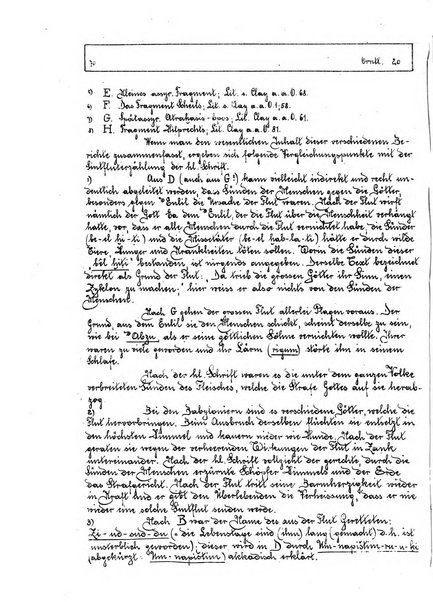 70 Orntl. 20
5) E. Kleines assyr. Fragment; Lit. s. Clay a.a.O. 68.
6) F. Das Fragment Scheils; Lit. s. Clay a.a.O. 58.
7) G. Spätassyr. Atrahasis-epos; Lit. Clay a.a.O. 61.
8) H. Fragment Hilprechts; Lit. Clay a.a.O. 81.
Wenn man den wesentlichen Inhalt dieser verschiedenen Be-
richte zusammenfasst, ergeben sich folgende Vergleichungspunkte mit der
Sintfluterzählung der hl. Schrift.
1) Aus D (auch aus G!) kann vielleicht indirekt und recht un-
deutlich abgeleitet werden, dass Sünden der Menschen gegen die Götter,
besonders gegen Enlil die Ursache der Flut waren. Nach der Flut wirft
nämlich der Gott Ea dem Enlil, der die Flut über die Menschheit verhängt
hatte, vor, dass er alle Menschen durch die Flut vernichtet habe; die Sünder
(be-el hi-ti) und die Missetäter (be-el hab-la-ti) hätte er durch wilde
Tiere, Hunger und Krankheiten töten sollen. Worin die Sünden dieser
"bêl hiti" bestanden ist nirgends angegeben. Derselbe Text bezeichnet
direkt als Grund der Flut: "Da trieb die grossen Götter ihr Sinn, einen
Zyklon zu machen"; hier weiss er also nichts von den Sünden der
Menschen.
Nach G gehen der grossen Flut allerlei Plagen voraus. Der
Grund, aus dem Enlil sie den Menschen schickt, scheint derselbe zu sein,
wie bei Abzu, als er seine göttlichen Söhne vernichten wollte. Ihrer
waren zu viele geworden und ihr Lärm (rigum) störte ihn in seinem
Schlafe.
Nach der hl. Schrift waren es die unter dem ganzen Volke
verbreiteten Sünden des Fleisches, welche die Strafe Gottes auf sie herab-
zog.
2) Bei den Babyloniern sind es verschiedene Götter, welche die
Flut hervorbringen. Beim Ausbruch derselben flüchten sie entsetzt in
den höchsten Himmel und kauern nieder wie Hunde. Nach der Flut
geraten sie wegen der verheerenden Wirkungen der Flut in Zank
untereinander. Nach der hl. Schrift vollzieht der gerechte, durch die
Sünden der Menschen erzürnte Schöpfer Himmels und der Erde
das Strafgericht. Nach der Flut tritt seine Barmherzigkeit wieder
in Kraft und er gibt den Überlebenden die Verheissung, dass er nie
wieder eine solche Sintflut senden werde.
3) Nach B war der Name des aus der Flut Geretteten:
Zi-ud-sud-du (= die Lebenstage sind (ihm) lang (gemacht) d.h. ist
unsterblich geworden); dieser wird in D durch Um-napištim-ru-u-ki
(abgekürzt: Um-napištim) akkadisch erklärt.